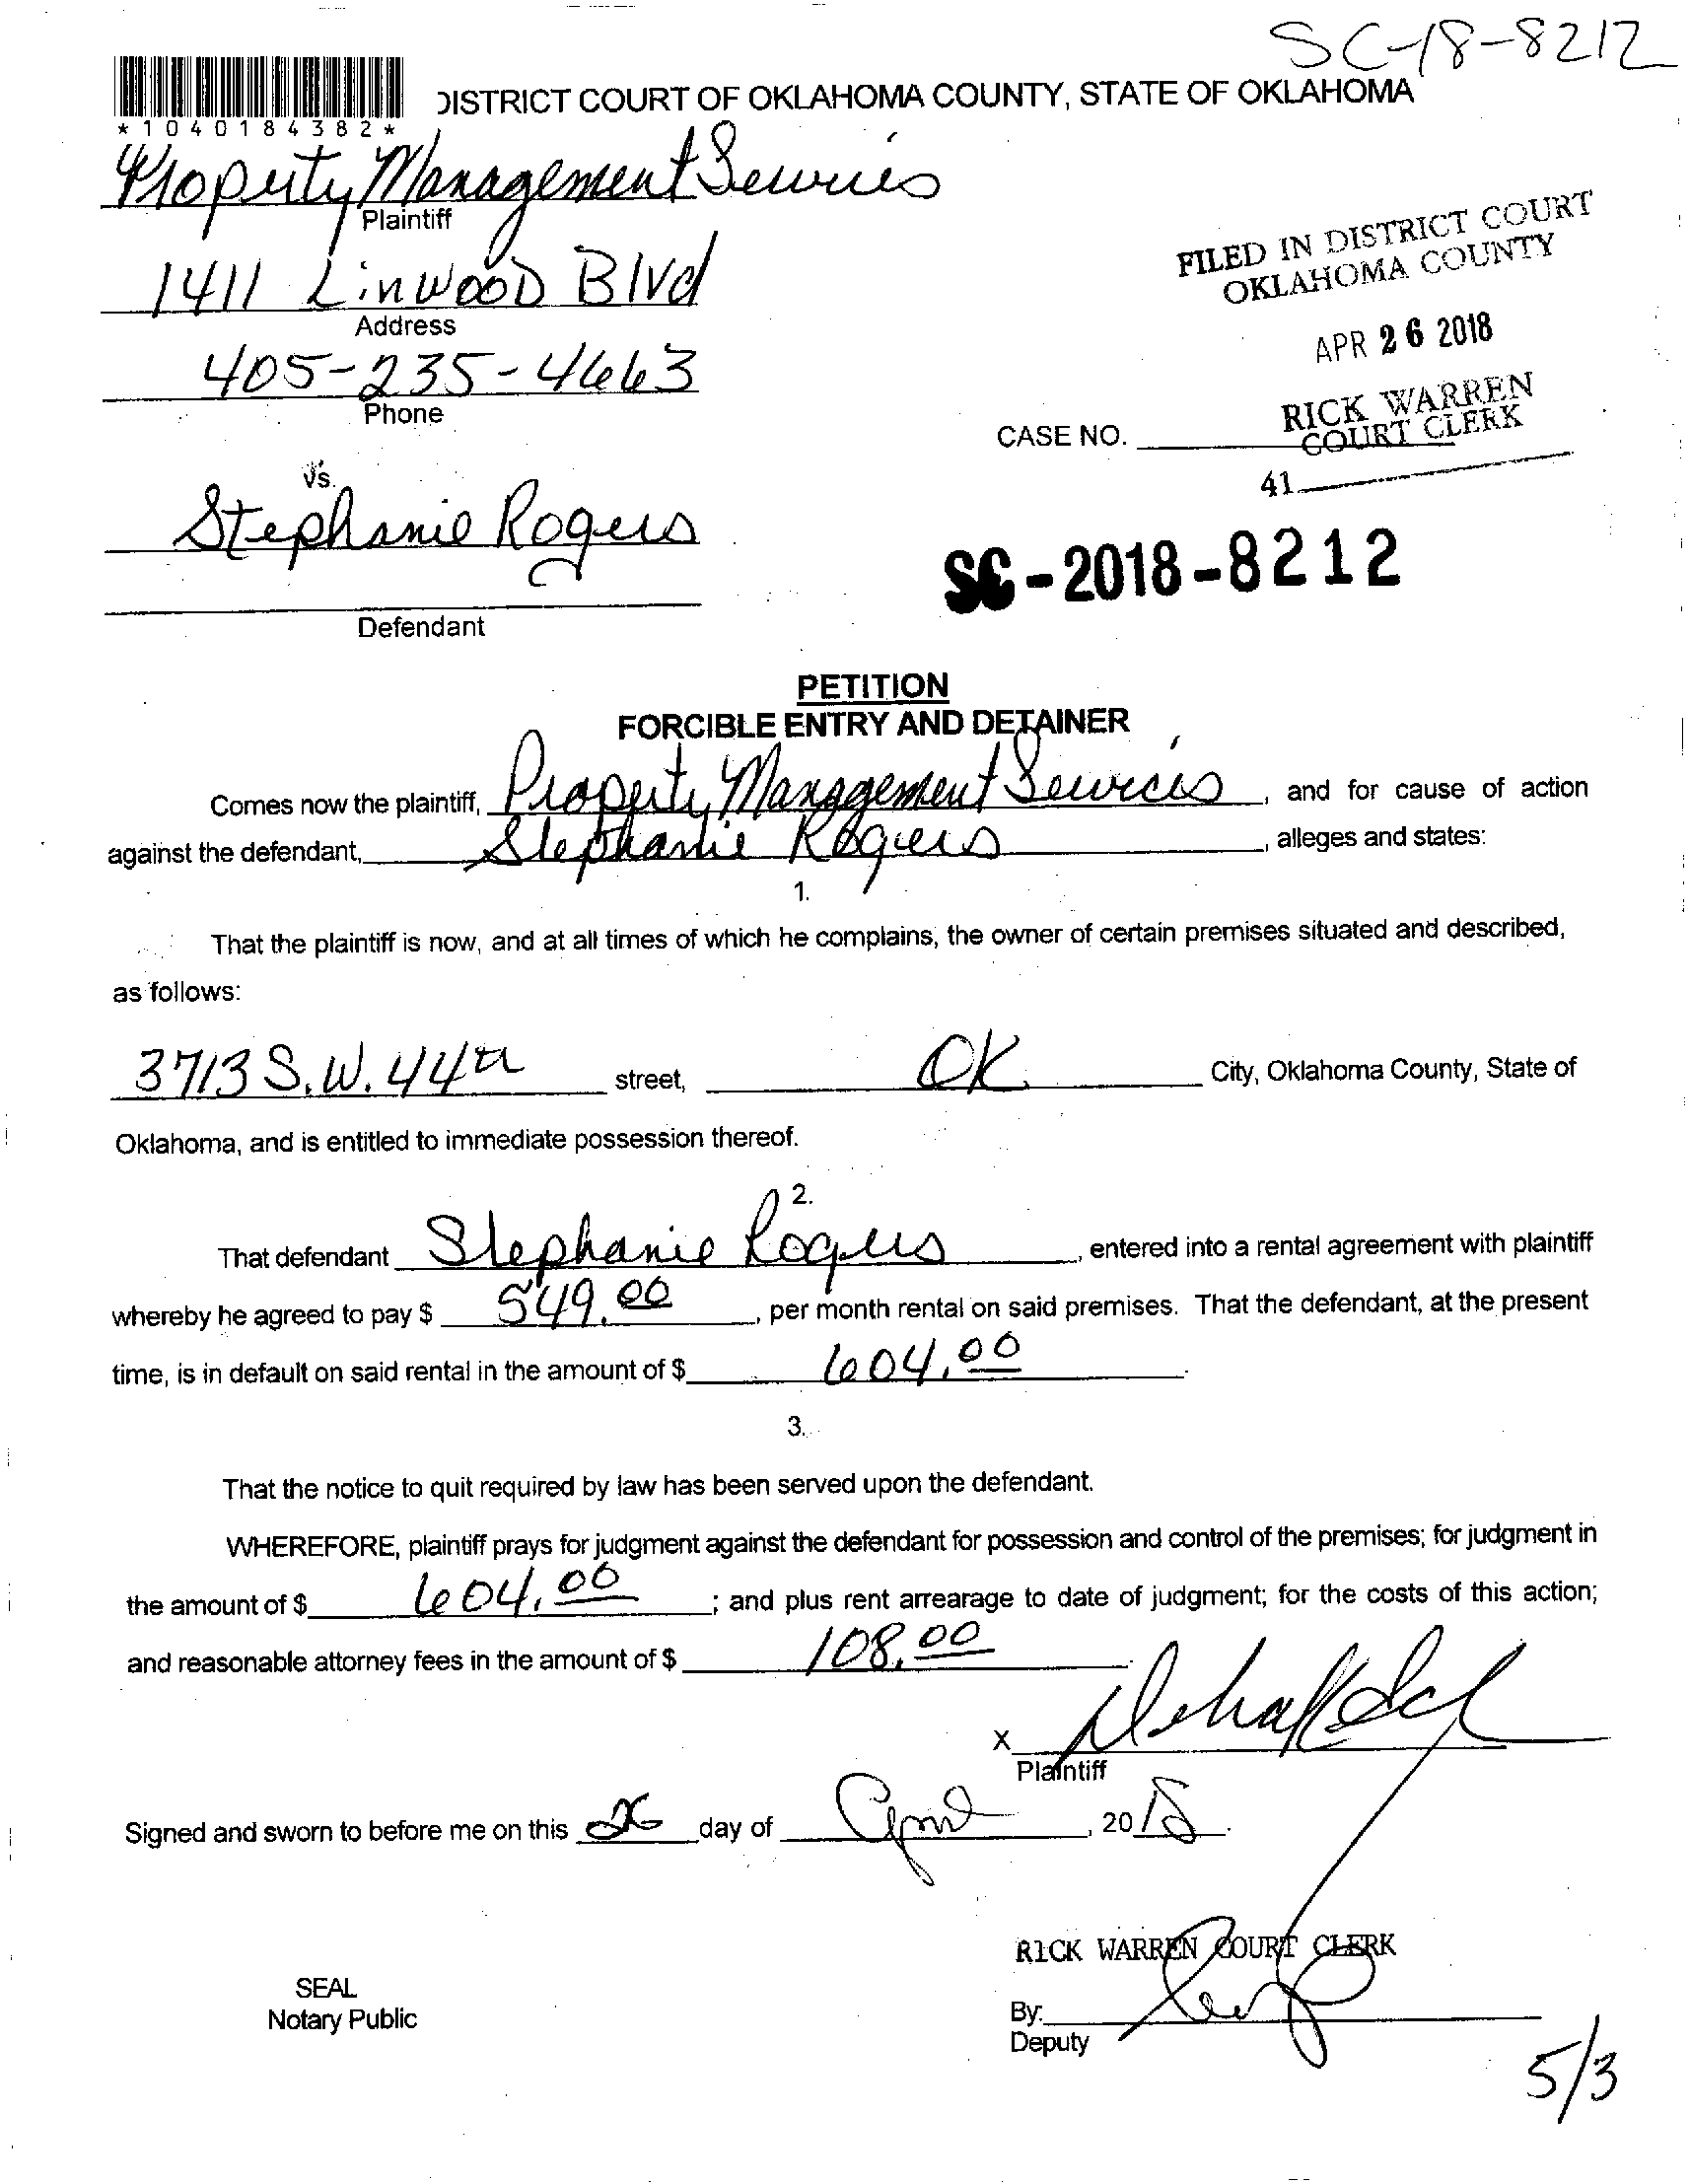 SC-18-8212
DISTRICT COURT OF OKLAHOMA COUNTY, STATE OF OKLAHOMA
*1040184382*
Property Management Services
Plaintiff
FILED IN DISTRICT COURT
OKLAHOMA COUNTY
1411 Linwood Blvd
Address
APR 26 2018
405-235-4663
Phone
RICK WARREN
COURT CLERK
CASE NO.
41
vs.
Stephanie Rogers
SC-2018-8212
Defendant
PETITION
FORCIBLE ENTRY AND DETAINER
Comes now the plaintiff, Property Management Services, and for cause of action
against the defendant, Stephanie Rogers, alleges and states:
1.
That the plaintiff is now, and at all times of which he complains, the owner of certain premises situated and described,
as follows:
3713 S.W. 44th street, OK City, Oklahoma County, State of
Oklahoma, and is entitled to immediate possession thereof.
2.
That defendant Stephanie Rogers, entered into a rental agreement with plaintiff
whereby he agreed to pay $ 549.00, per month rental on said premises. That the defendant, at the present
time, is in default on said rental in the amount of $ 604.00.
3.
That the notice to quit required by law has been served upon the defendant.
WHEREFORE, plaintiff prays for judgment against the defendant for possession and control of the premises; for judgment in
the amount of $ 604.00; and plus rent arrearage to date of judgment; for the costs of this action;
and reasonable attorney fees in the amount of $ 108.00
X
Plaintiff
Signed and sworn to before me on this 26 day of April, 2018.
RICK WARREN COURT CLERK
SEAL
Notary Public
By:
Deputy
5/3